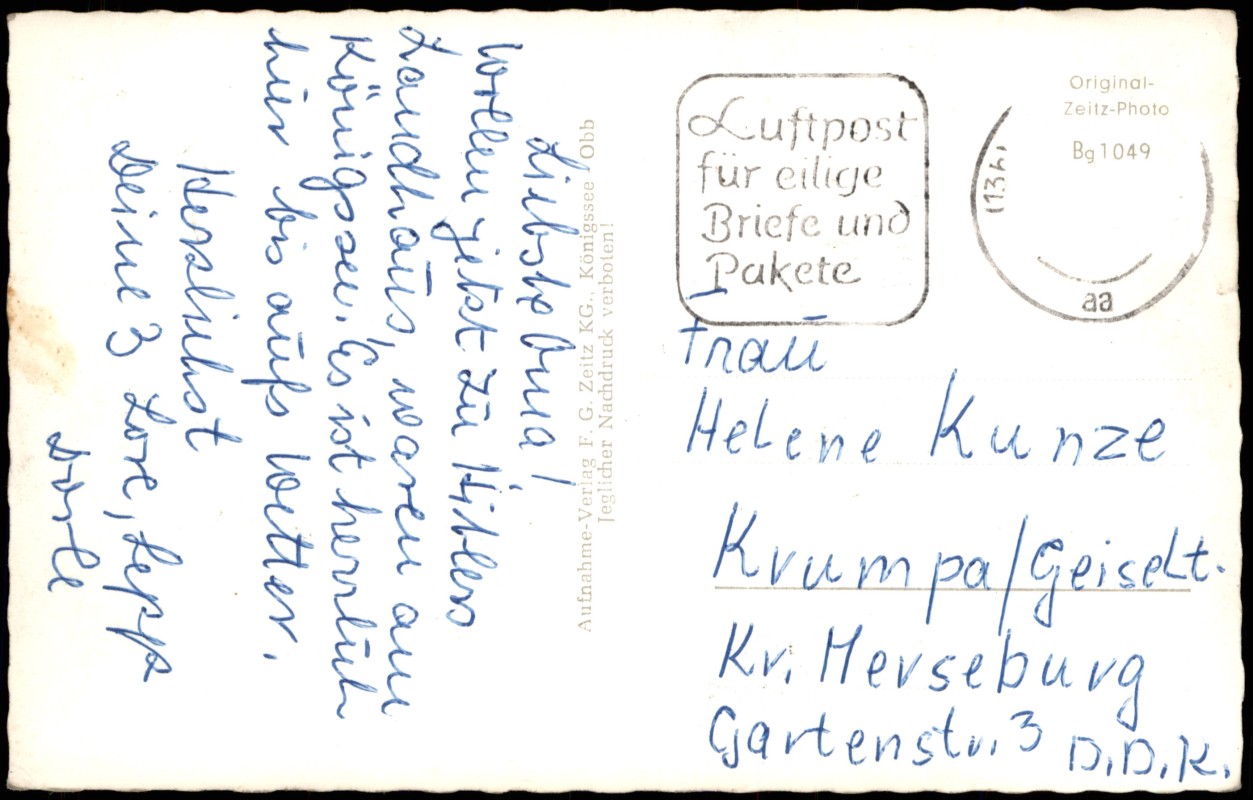 Liebste Oma!
Wollen jetzt zu Hitlers
Landhaus, waren am
Königssee. Es ist herrlich
hier bis aufs Wetter.
Herzlichst
Deine 3 Lore, Sepp
Dorle
Aufnahme-Verlag F. G. Zeitz KG., Königssee Obb
Jeglicher Nachdruck verboten!
Luftpost
für eilige
Briefe und
Pakete
aa
Original-
Zeitz-Photo
Bg 1049
Frau
Helene Kunze
Krumpa/Geiselt.
Kr. Merseburg
Gartenstr. 3 D.D.R.